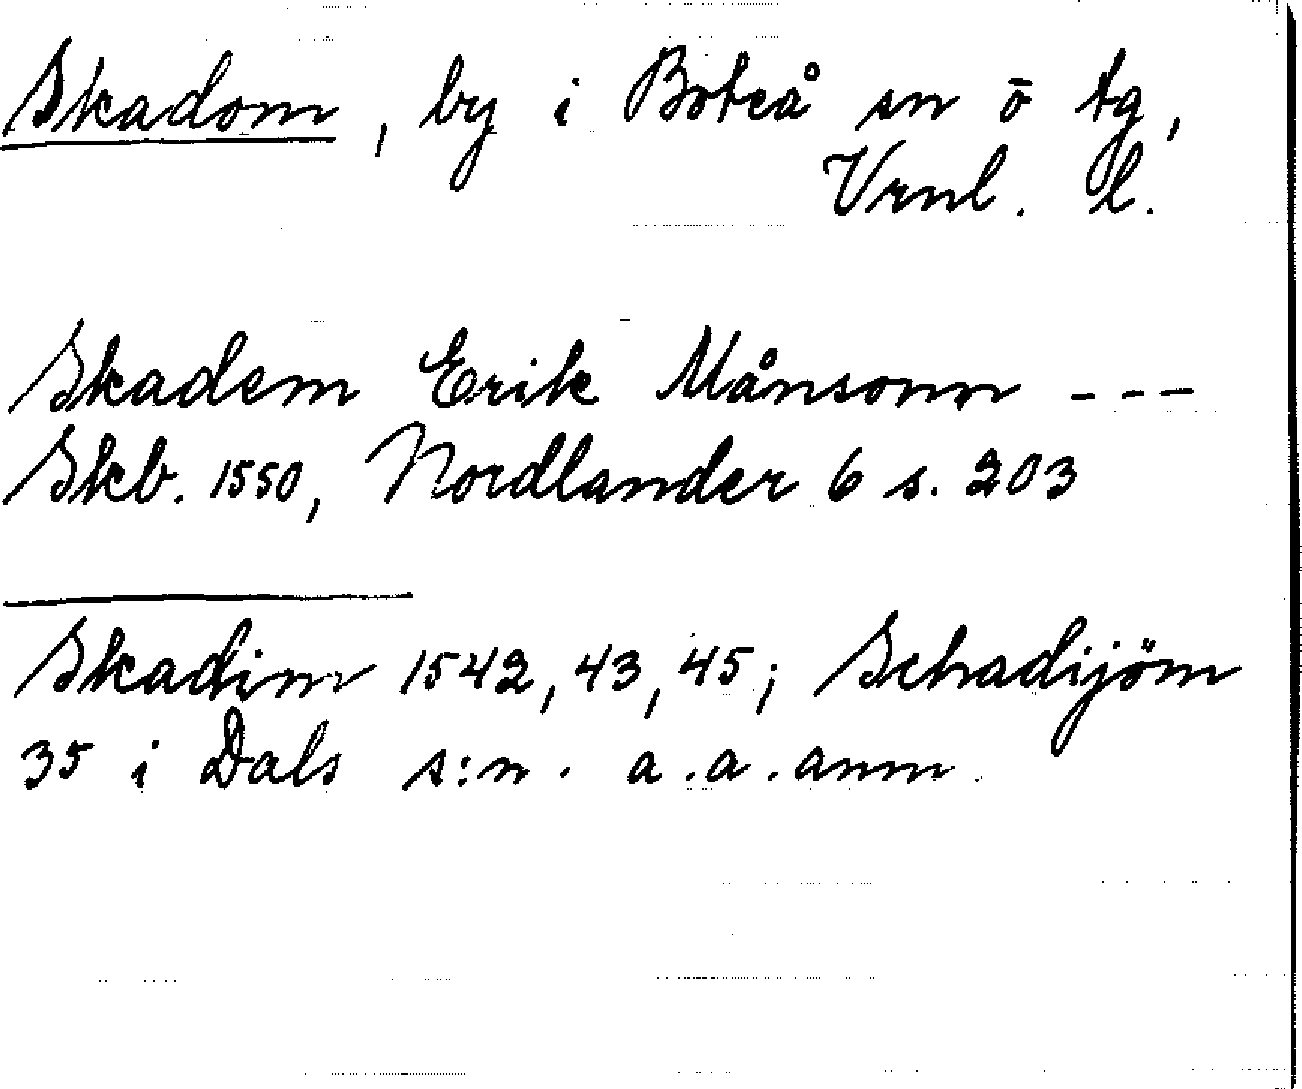 Skadom, by i Boteå sn ō tg,
Vrnl. l.
Skadem Erik Månsonn ---
Skb. 1550, Nordlander 6 s. 203
Skadim 1542, 43, 45; Schadijöm
35 i Dals s:n. a.a.anm.